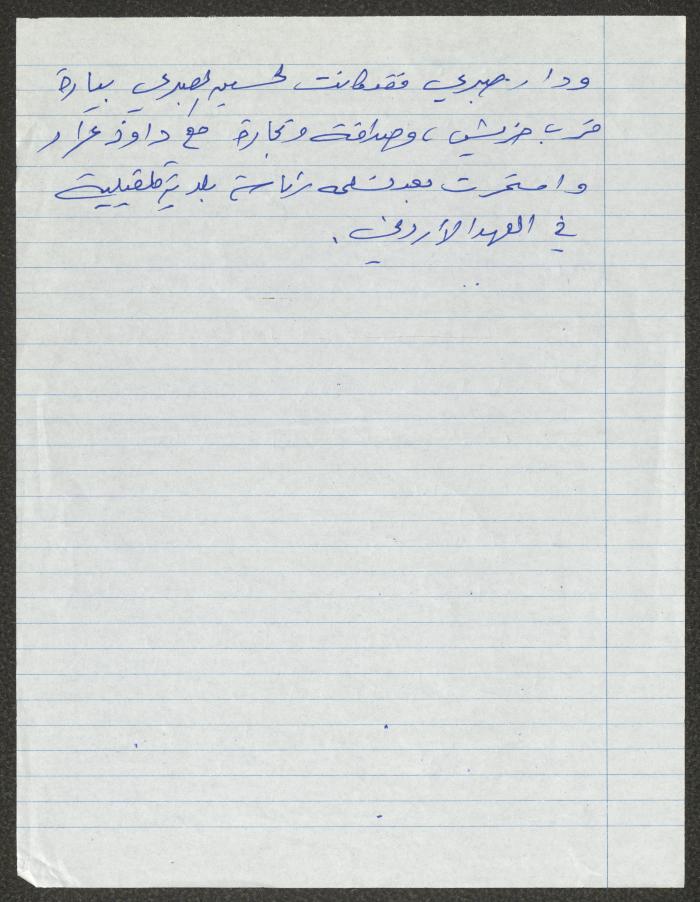 ودار صبري فقد كانت لحسين صبري بيارة
قرب خريش، وصداقة وتجارة مع داود عرار
واستمرت بعد تسلمه رئاسة بلدية قلقيلية
في العهد الأردني.